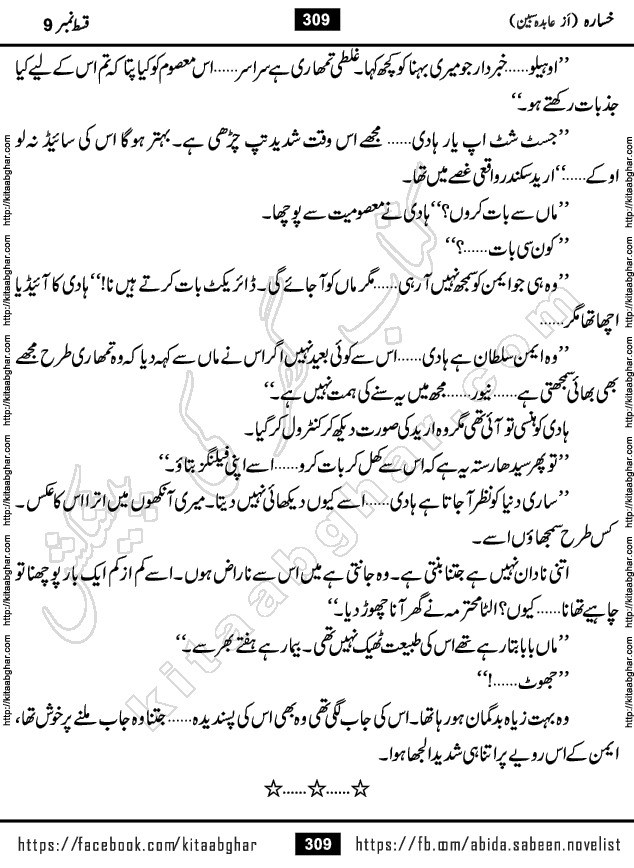 خسارہ (از عابدہ سبین) 309 قسط نمبر 9
’’اوہیلو......خبردار جو میری بہنا کو کچھ کہا۔ غلطی تمھاری ہے سراسر......اس معصوم کو کیا پتا کہ تم اس کے لیے کیا
جذبات رکھتے ہو۔‘‘
’’جسٹ شٹ اپ یار ہادی...... مجھے اس وقت شدید تپ چڑھی ہے۔ بہتر ہوگا اس کی سائیڈ نہ لو
اوکے......‘‘ ارید سکندر واقعی غصے میں تھا۔
’’ماں سے بات کروں؟‘‘ ہادی نے معصومیت سے پوچھا۔
’’کون سی بات......؟‘‘
’’وہ ہی جو ایمن کو سمجھ نہیں آ رہی......مگر ماں کو آ جائے گی۔ ڈائریکٹ بات کرتے ہیں نا!‘‘ ہادی کا آئیڈیا
اچھا تھا مگر......
’’وہ ایمن سلطان ہے ہادی......اس سے کوئی بعید نہیں اگر اس نے ماں سے کہہ دیا کہ وہ تمھاری طرح مجھے
بھی بھائی سمجھتی ہے...... نیور...... مجھ میں یہ سنے کی ہمت نہیں ہے۔‘‘
ہادی کو ہنسی تو آئی تھی مگر وہ ارید کی صورت دیکھ کر کنٹرول کر گیا۔
’’تو پھر سیدھا رستہ یہ ہے کہ اس سے کھل کر بات کرو......اسے اپنی فیلنگز بتاؤ۔‘‘
’’ساری دنیا کو نظر آ جاتا ہے ہادی......اسے کیوں دیکھائی نہیں دیتا۔ میری آنکھوں میں اترا اس کا عکس۔
کس طرح سمجھاؤں اسے۔
اتنی نادان نہیں ہے جتنا بنتی ہے۔ وہ جانتی ہے میں اس سے ناراض ہوں۔ اسے کم از کم ایک بار پوچھنا تو
چاہیے تھا نا......کیوں؟ الٹا محترمہ نے گھر آنا چھوڑ دیا۔‘‘
’’ماں بابا بتا رہے تھے اس کی طبیعت ٹھیک نہیں تھی۔ بیمار ہے ہفتے بھر سے۔‘‘
’’جھوٹ......!‘‘
وہ بہت زیاہ بدگمان ہو رہا تھا۔ اس کی جاب لگی تھی وہ بھی اس کی پسندیدہ...... جتنا وہ جاب ملنے پر خوش تھا،
ایمن کے اس رویے پر اتنا ہی شدید الجھا ہوا۔
☆......☆......☆
https://facebook.com/kitaabghar 309 https://fb.com/abida.sabeen.novelist
http://kitaabghar.com http://kitaabghar.com http://kitaabghar.com http://kitaabghar.com http://kitaabghar.com http://kitaabghar.com
http://kitaabghar.com http://kitaabghar.com http://kitaabghar.com http://kitaabghar.com http://kitaabghar.com http://kitaabghar.com
کتاب گھر کی پیشکش
kitaabghar.com